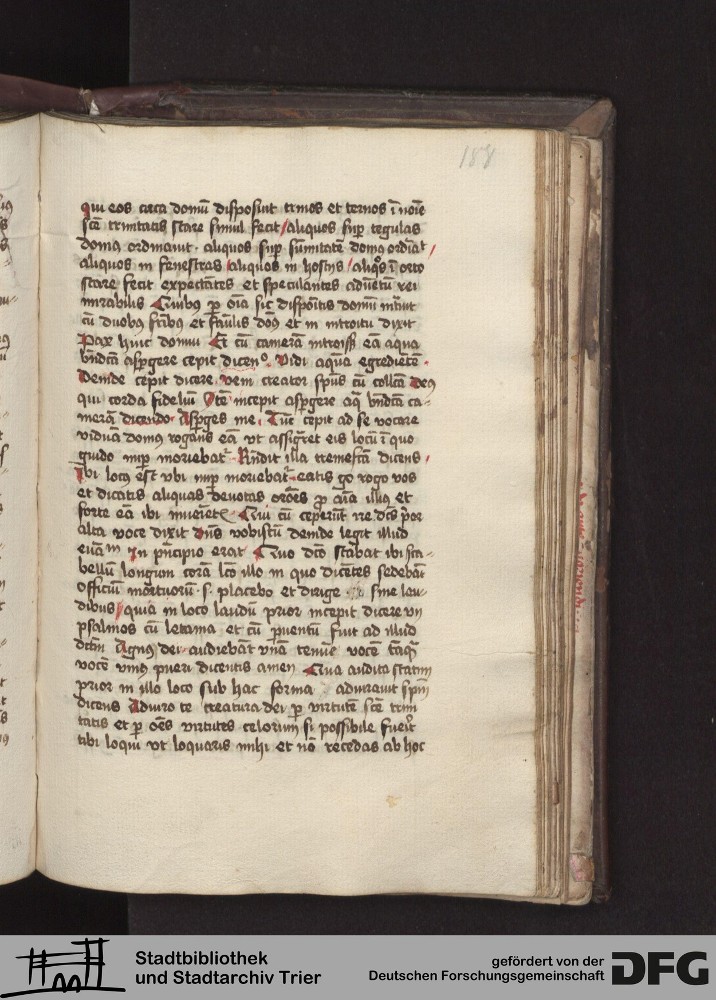 188
Qui eos circa domū disposuit trinos et ternos ī noīe
scē trinitatis stare simul fecit / aliquos sup̄ tegulas
domus ordinauit · aliquos sup̄ sūmitatē domus ordīat /
aliquos in fenestras / aliquos in hostijs / aliqᵒs ī orto
stare fecit expectātes et speculantes aduētū rei
mirabilis Quibus p̄ oīa sic dispōitis domū intᵃuit
cū duobus frībus et fāulis dōus et in introitu dixit
Pax huic domui Et cū camerā introiss̄ eā aqua
bn̄dcā asp̄gere cepit dicenᵒ. Vidi aquā egrediētē ·
Deinde cepit dicere veni creator sp̄us cū collcā Deꝯ
qui corda fideliū Itē incepit asp̄gere aq̄ bn̄dcā ca-
merā dicendo Asp̄ges me · Tūc cepit ad se vocare
viduā domus rogans eā vt assiḡret eis locū ī quo
guido nup̄ moriebat᷑ Rn̄dit illa tremefcā dicens /
Ibi locꝯ est vbi nup̄ moriebat᷑ · eatis go rogo vos
et dicatis aliquas deuotas orōes p̄ aīa illiꝯ et
forte eā ibi inueiet᷑ · Qui cū ceperūt ire dcs p̄or
alta voce dixit dn̄s vobiscū deinde legit illud
euāᵐ In p̄ncipio erat Quo dco stabat ibi sca-
bellū longum corā lco illo in quo dicētes sedebāt
officiū mortuorū · s · placebo et dirige sine lau-
dibus / quia in loco laudū prior incepit dicere vij
psalmos cū letania et cū p̄uentū fuit ad illud
dctm̄ Agnꝯ dei · audiebāt vnā tenuē vocē tāq̄
vocē vniꝯ pueri dicentis amen Qua audita statim
prior in illo loco sub hac forma adiurauit sp̄m
dicens Adiuro te creatura dei p̄ virtutē scē trini
tatis et p̄ oēs virtutes celorum si possibile fueit
tibi loqui vt loquaris mihi et nō recedas ab hoc
Stadtbibliothek
und Stadtarchiv Trier
gefördert von der
Deutschen Forschungsgemeinschaft
DFG